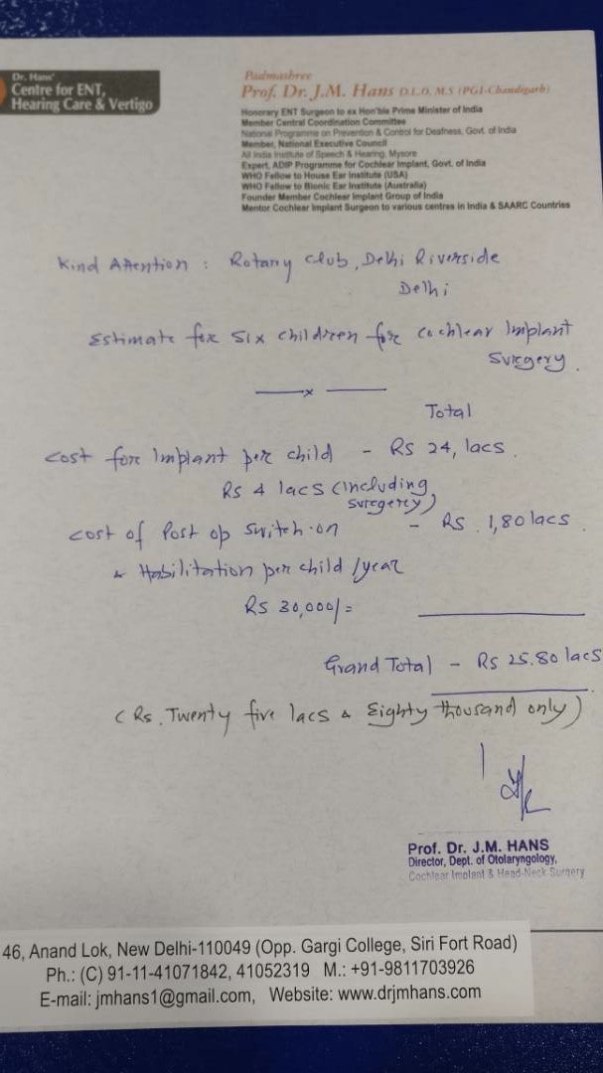 Dr. Hans'
Centre for ENT,
Hearing Care & Vertigo
Padmashree
Prof. Dr. J.M. Hans D.L.O, M.S (PGI-Chandigarh)
Honorary ENT Surgeon to ex Hon'ble Prime Minister of India
Member Central Coordination Committee
National Programme on Prevention & Control for Deafness, Govt. of India
Member, National Executive Council
All India Institute of Speech & Hearing, Mysore
Expert, ADIP Programme for Cochlear Implant, Govt. of India
WHO Fellow to House Ear Institute (USA)
WHO Fellow to Bionic Ear Institute (Australia)
Founder Member Cochlear Implant Group of India
Mentor Cochlear Implant Surgeon to various centres in India & SAARC Countries
Kind Attention : Rotary Club, Delhi Riverside
Delhi
Estimate for six children for cochlear Implant
Surgery.
x
Total
Cost for Implant per child - Rs 24, lacs.
Rs 4 lacs (including
surgery)
Cost of Post op switch-on - Rs. 1,80 lacs.
& Habilitation per child / year
Rs 30,000/=
Grand Total - Rs 25.80 lacs
(Rs. Twenty five lacs & Eighty thousand only)
Prof. Dr. J.M. HANS
Director, Dept. of Otolaryngology,
Cochlear Implant & Head-Neck Surgery
46, Anand Lok, New Delhi-110049 (Opp. Gargi College, Siri Fort Road)
Ph.: (C) 91-11-41071842, 41052319 M.: +91-9811703926
E-mail: jmhans1@gmail.com, Website: www.drjmhans.com